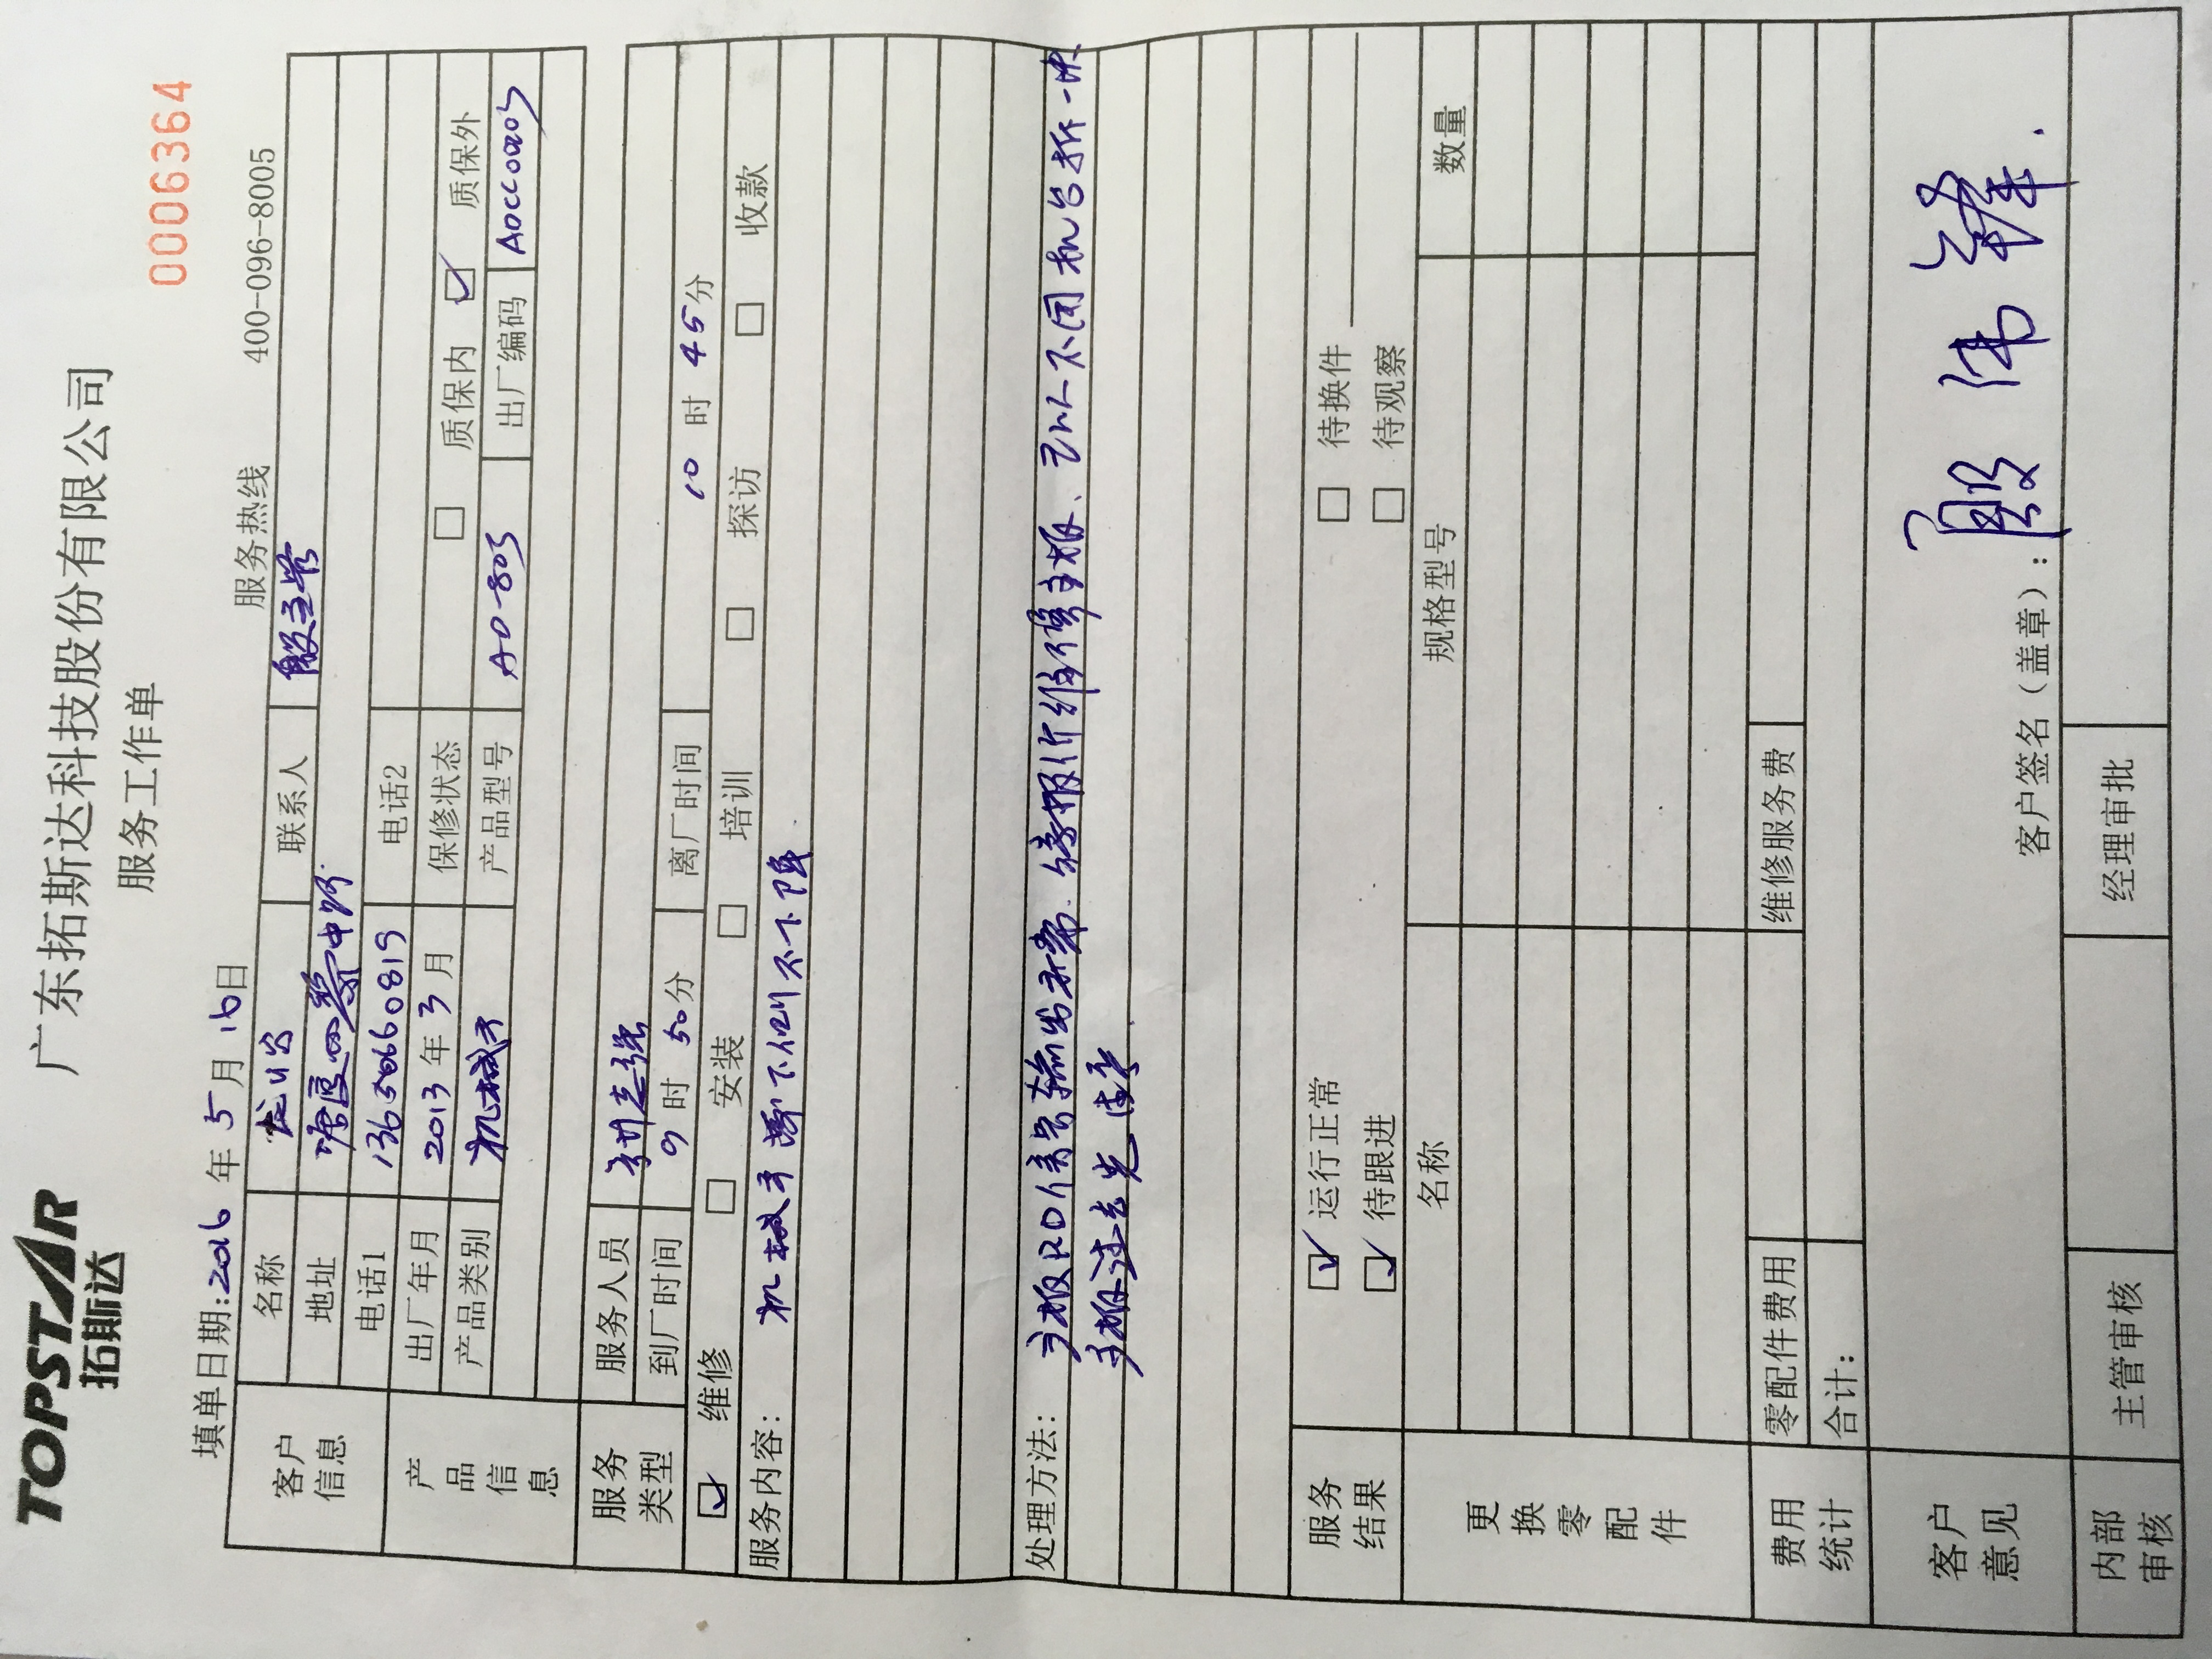 TOPSTAR
拓斯达
广东拓斯达科技股份有限公司
0006364
服务工作单
填单日期:2016 年 5 月 16 日 服务热线 400-096-8005
客户信息
名称 联系人 殷主管
地址 塘厦
电话1 13650660819 电话2
产品信息
出厂年月 2013 年 3 月 保修状态 □ 质保内 ☑ 质保外
产品类别 机械手 产品型号 AD-803 出厂编码
服务类型
服务人员 志强
到厂时间 9 时 50 分 离厂时间 10 时 45 分
☑ 维修 □ 安装 □ 培训 □ 探访 □ 收款
服务内容:
机械手 下不下降
处理方法:
主板 信号输出 待报价维修主板、 不用机台拆一块
主板 先
服务结果
☑ 运行正常 □ 待换件
☑ 待跟进 □ 待观察
更换零配件
名称 规格型号 数量
费用统计
零配件费用 维修服务费
合计:
客户意见
客户签名(盖章): 殷伟锋
内部审核
主管审核 经理审批